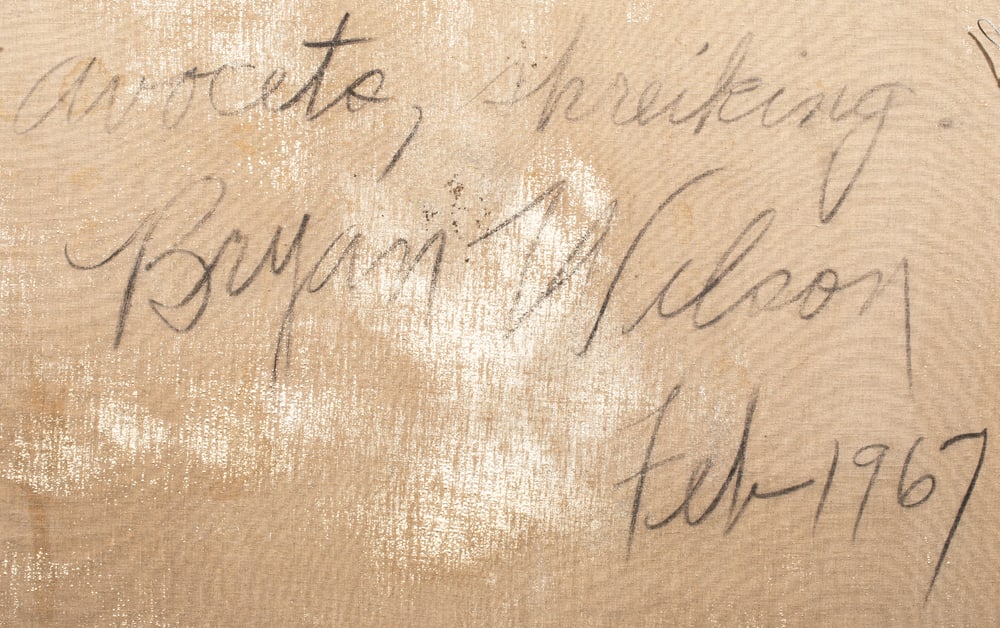 avocets, shreiking.
Bryan Wilson
Feb 1967